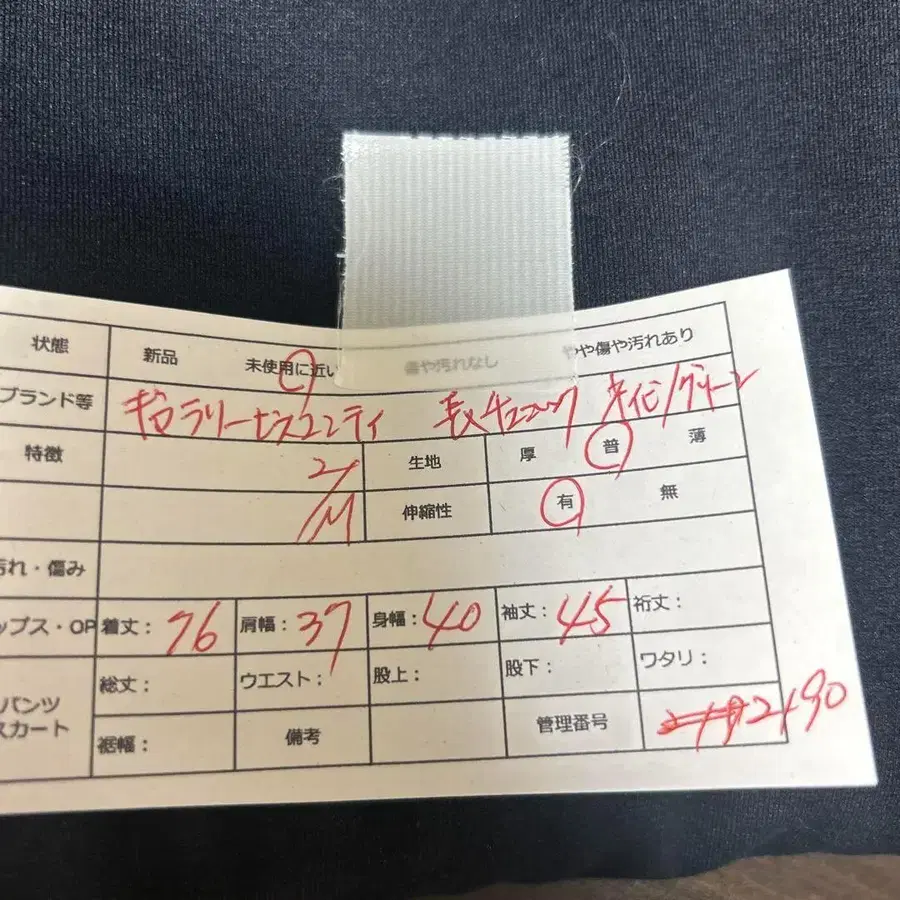 状態 新品 未使用に近い 傷や汚れなし やや傷や汚れあり
ブランド等 ギャラリービスコンティ 長チュニック ネイビー/グリーン
特徴 2/ 生地 厚 普 薄
/M 伸縮性 有 無
汚れ・傷み
ップス・OP 着丈: 76 肩幅: 37 身幅: 40 袖丈: 45 裄丈:
パンツ 総丈: ウエスト: 股上: 股下: ワタリ:
スカート 裾幅: 備考 管理番号 2190